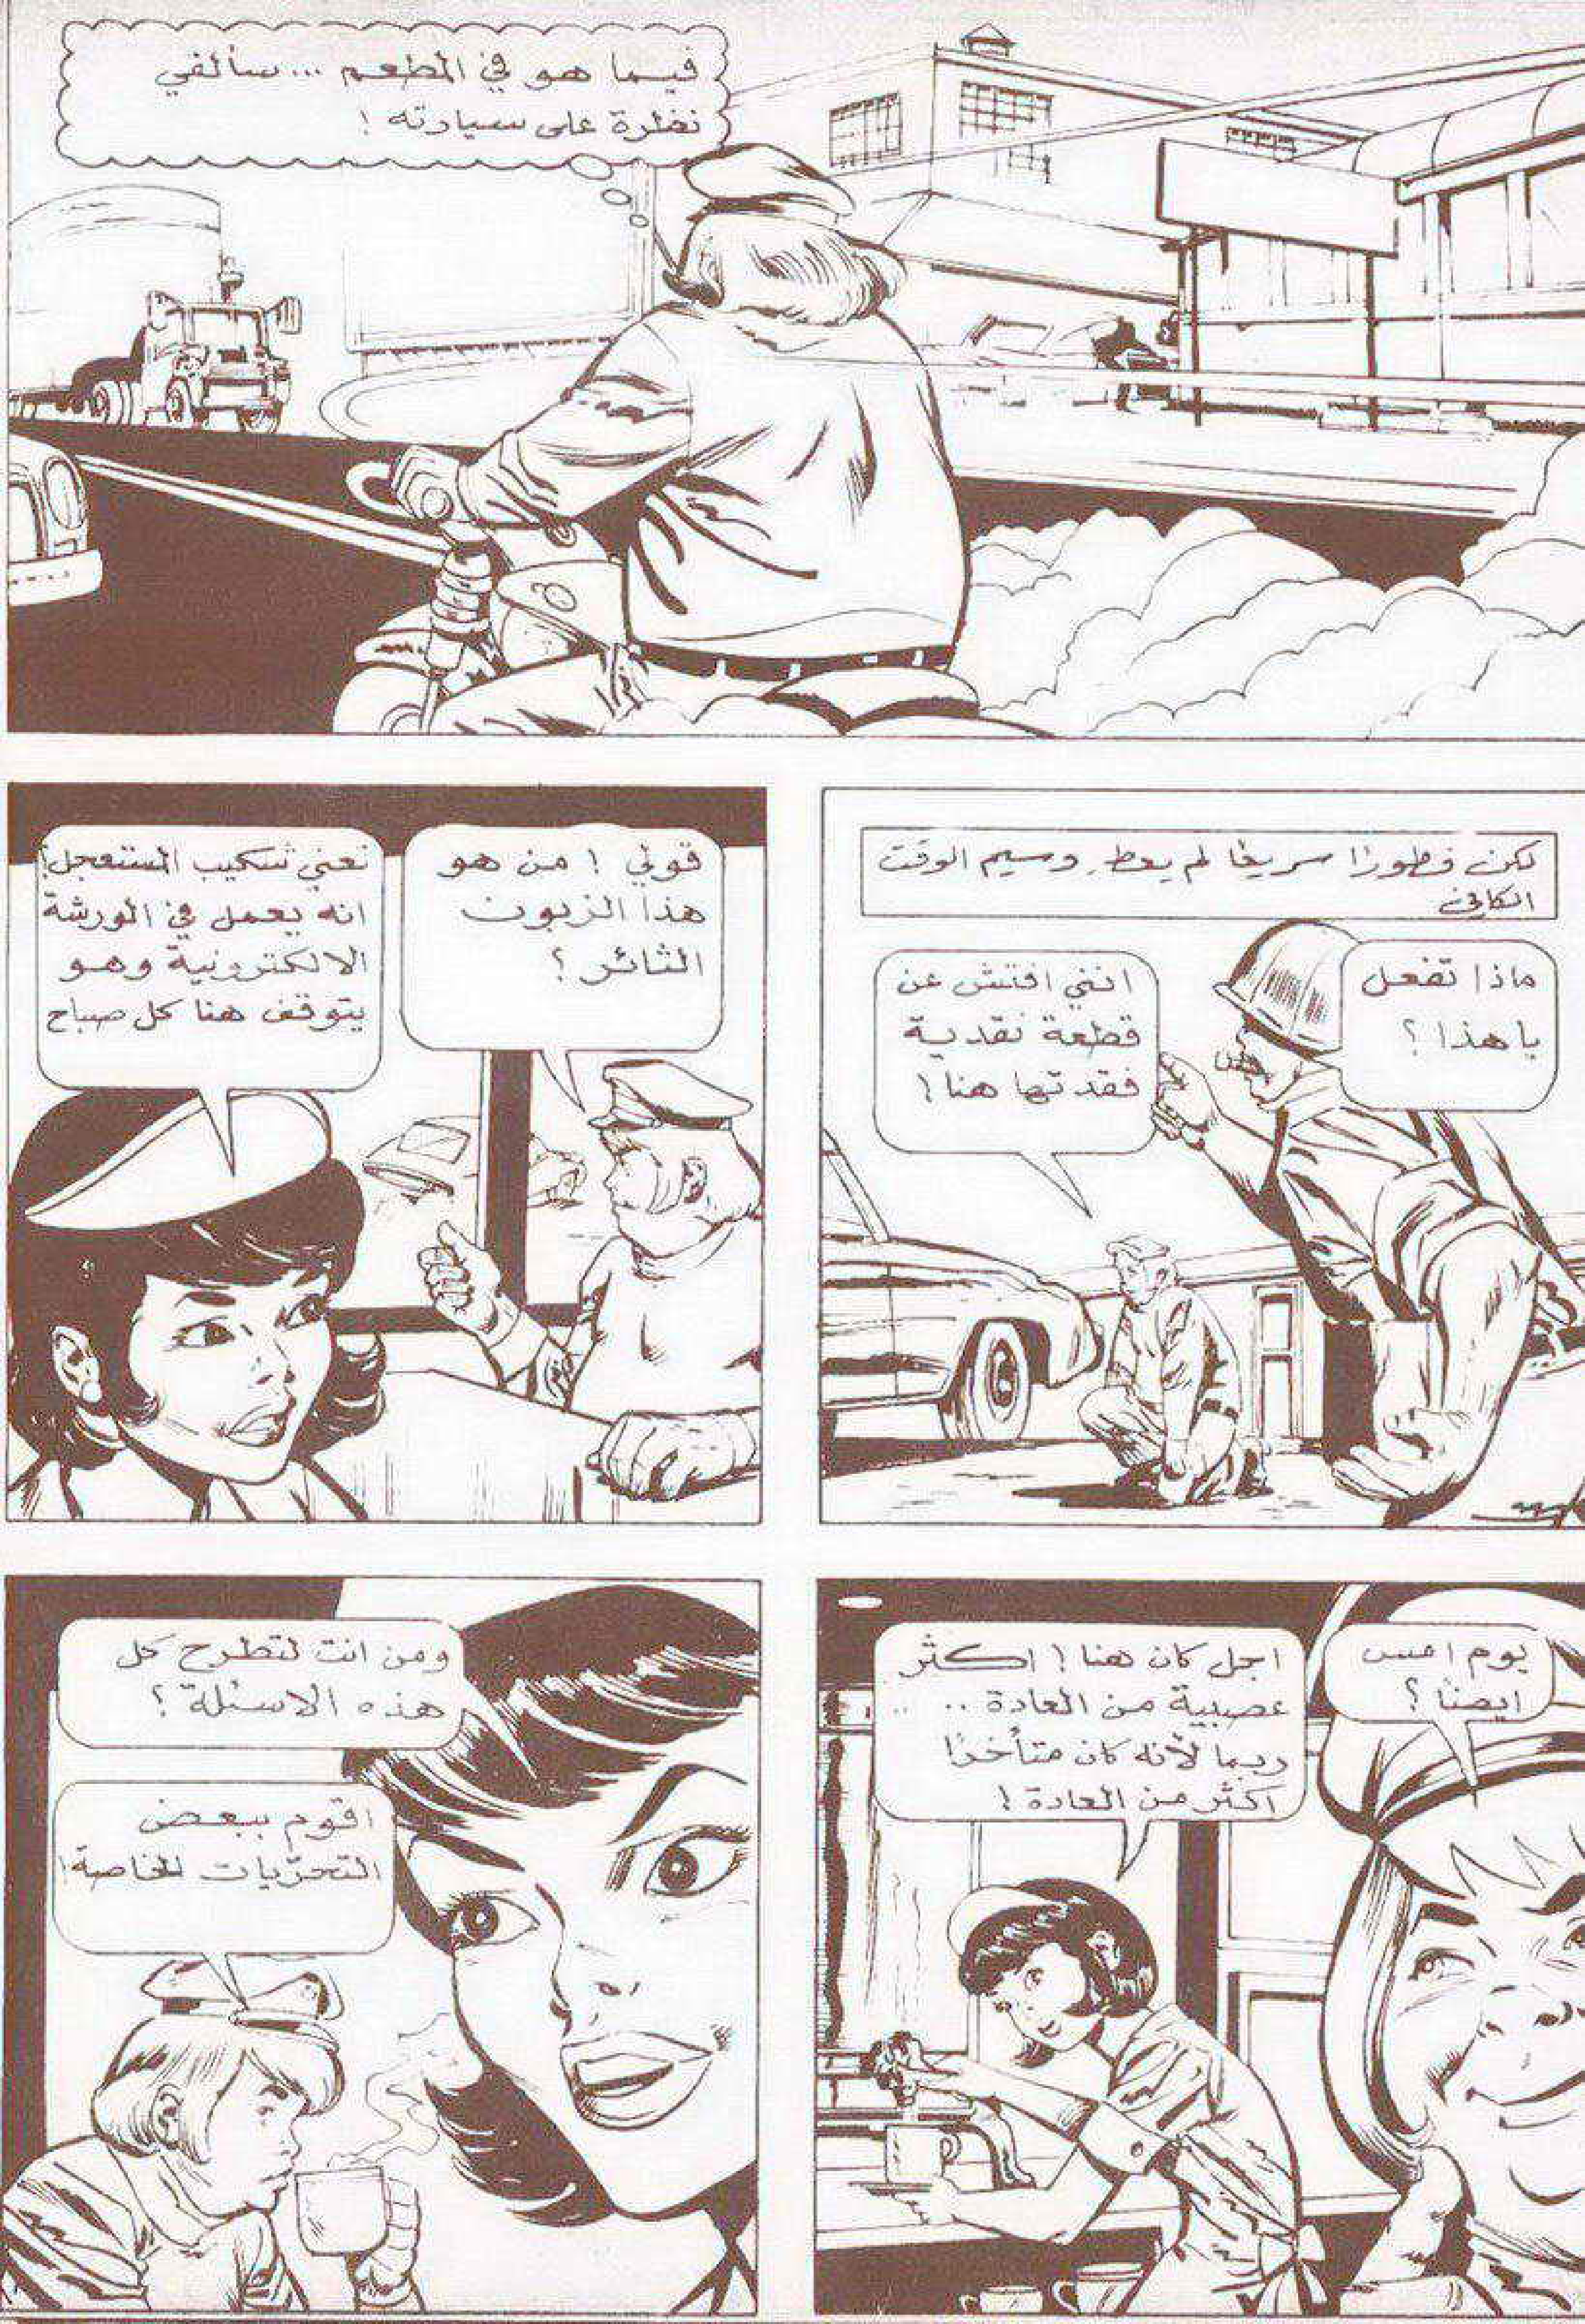 فيما هو في المطعم ... سألقي
نظرة على سيارته !
لكن فطورًا سريعًا لم يعطِ وسيم الوقت
الكافي
ماذا تفعل
يا هذا ؟
انني افتش عن
قطعة نقدية
فقدتها هنا !
قولي ! من هو
هذا الزبون
الثائر ؟
تعني شكيب المستعجل!
انه يعمل في الورشة
الالكترونية وهو
يتوقف هنا كل صباح
يوم امس
ايضًا ؟
اجل كان هنا ! اكثر
عصبية من العادة ..
ربما لأنه كان متأخرًا
اكثر من العادة !
ومن انت لتطرح كل
هذه الاسئلة ؟
اقوم ببعض
التحرّيات الخاصة!